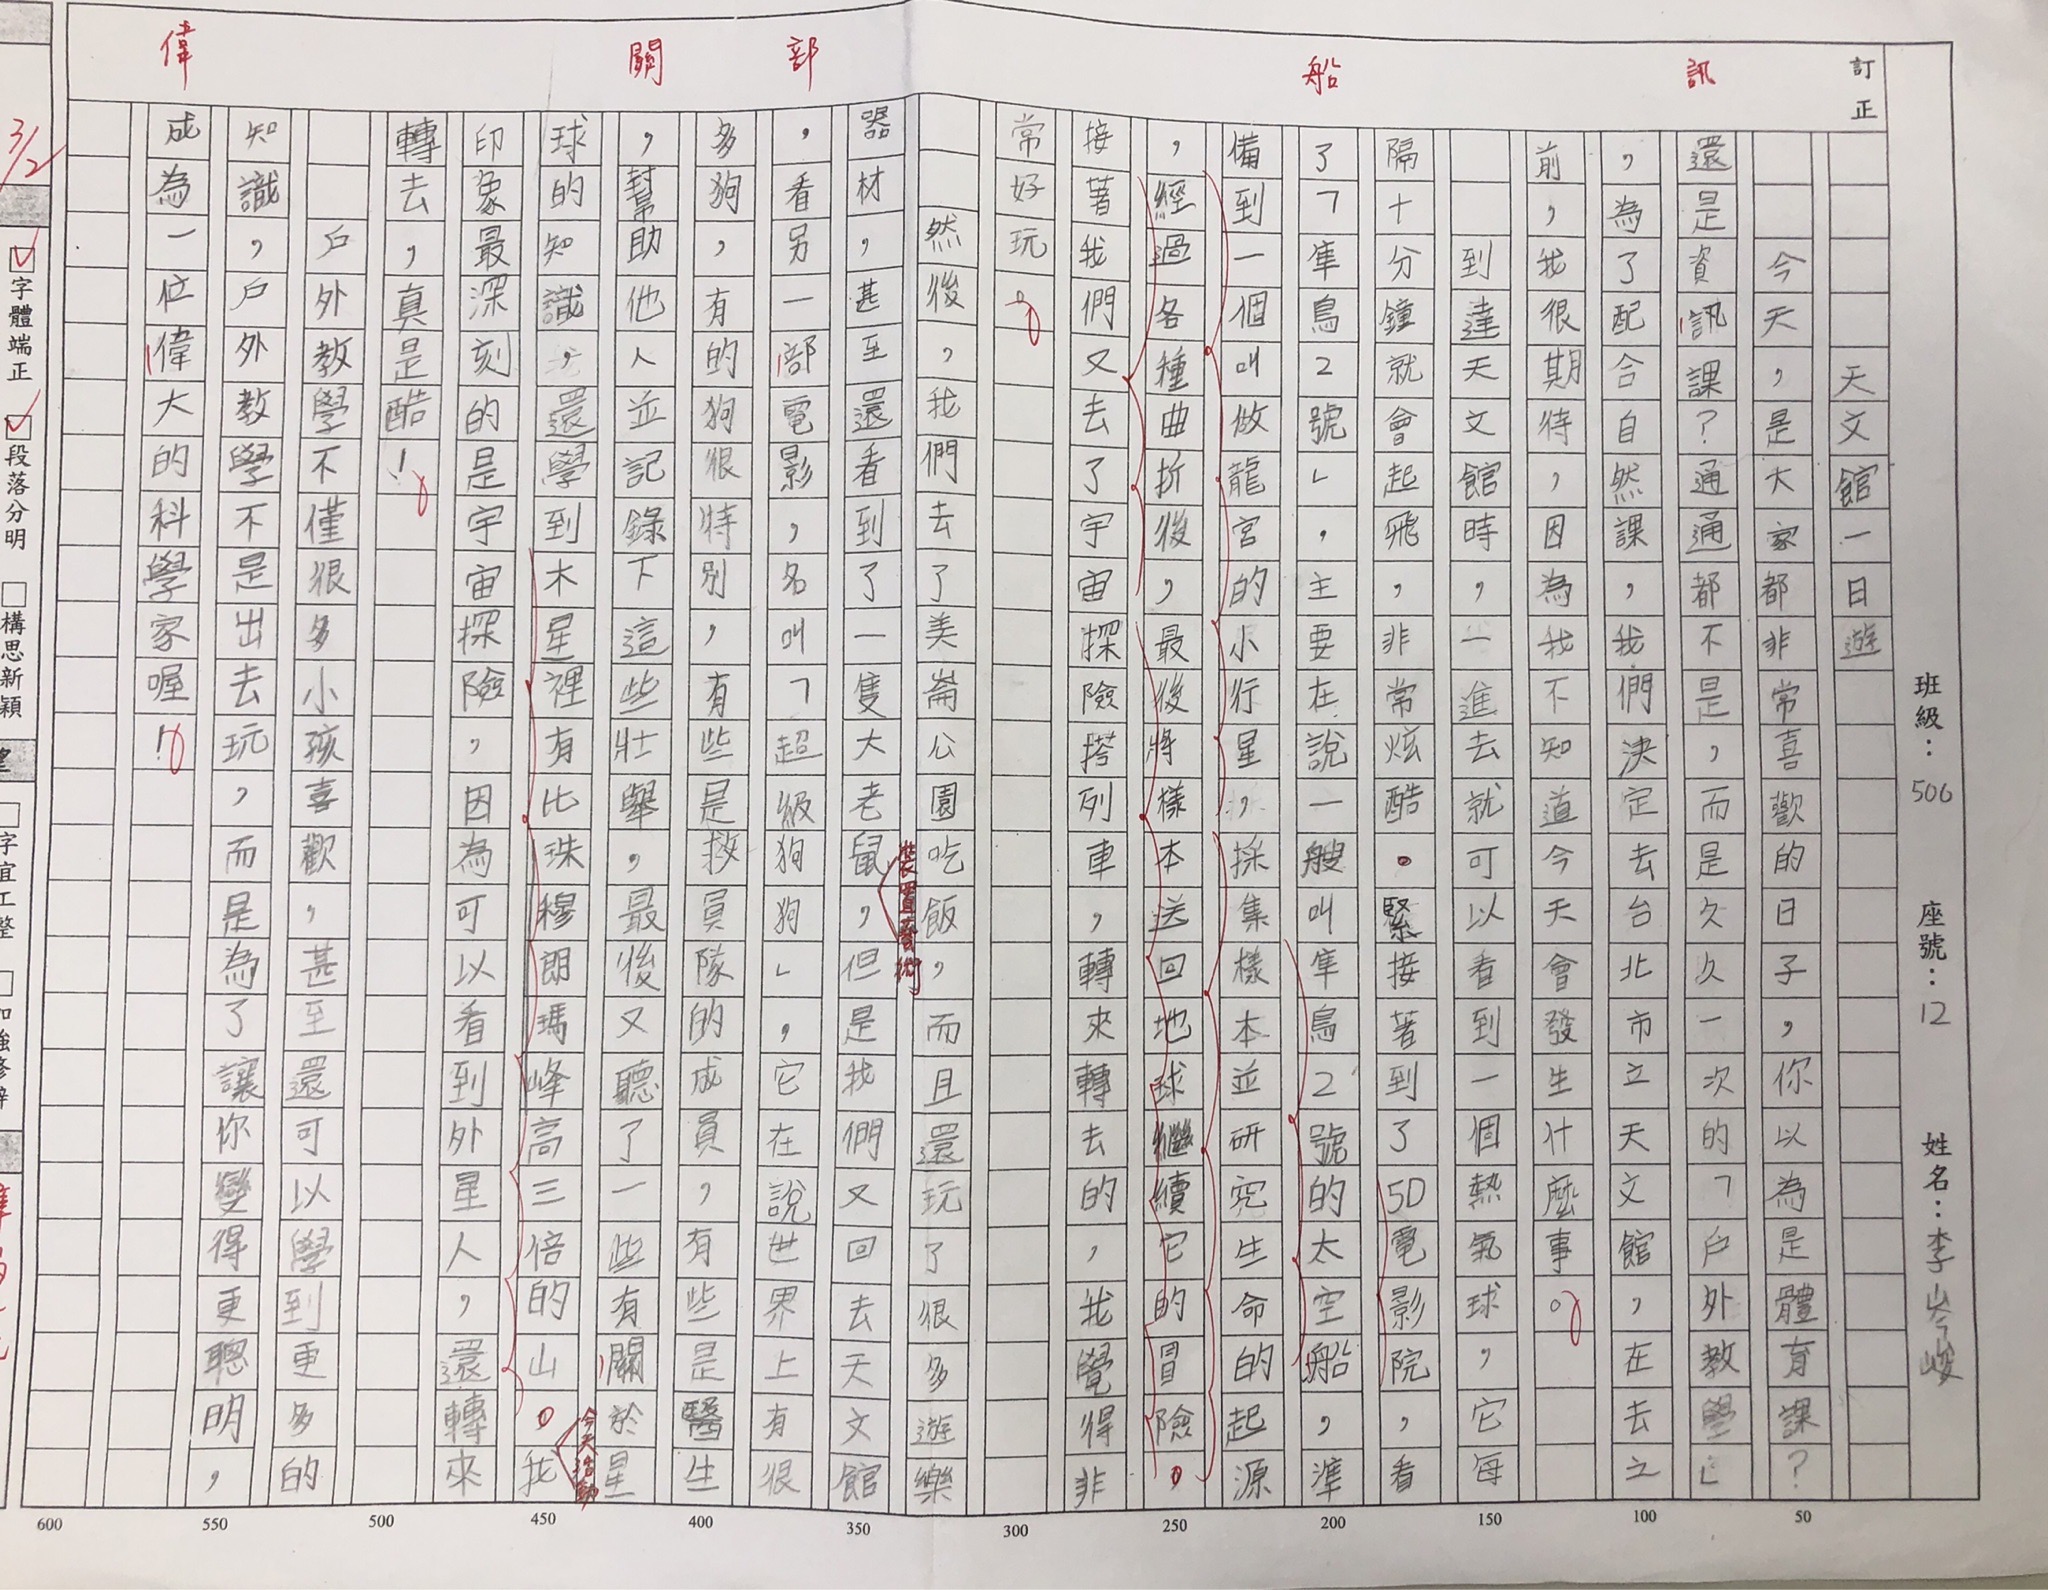 訂正
訊
船
部
關
偉
班級：506 座號：12 姓名：李岑峻
天文館一日遊
今天，是大家都非常喜歡的日子，你以為是體育課？
還是資訊課？通通都不是，而是久久一次的「戶外教學」
，為了配合自然課，我們決定去台北市立天文館，在去之
前，我很期待，因為我不知道今天會發生什麼事。
到達天文館時，一進去就可以看到一個熱氣球，它每
隔十分鐘就會起飛，非常炫酷。緊接著到了5D電影院，看
了「隼鳥2號」，主要在說一艘叫隼鳥2號的太空船，準
備到一個叫做龍宮的小行星，採集樣本並研究生命的起源
，經過各種曲折後，最後將樣本送回地球繼續它的冒險。
接著我們又去了宇宙探險搭列車，轉來轉去的，我覺得非
常好玩。
然後，我們去了美崙公園吃飯，而且還玩了很多遊樂
器材，甚至還看到了一隻大老鼠，但是我們又回去天文館
裝置藝術
，看另一部電影，名叫「超級狗狗」，它在說世界上有很
多狗，有的狗很特別，有些是救員隊的成員，有些是醫生
，幫助他人並記錄下這些壯舉，最後又聽了一些有關於星
球的知識，還學到木星裡有比珠穆朗瑪峰高三倍的山。我
今天活動
印象最深刻的是宇宙探險，因為可以看到外星人，還轉來
轉去，真是酷！
戶外教學不僅很多小孩喜歡，甚至還可以學到更多的
知識，戶外教學不是出去玩，而是為了讓你變得更聰明，
成為一位偉大的科學家喔！
50
100
150
200
250
300
350
400
450
500
550
600
3/2
字體端正
段落分明
構思新穎